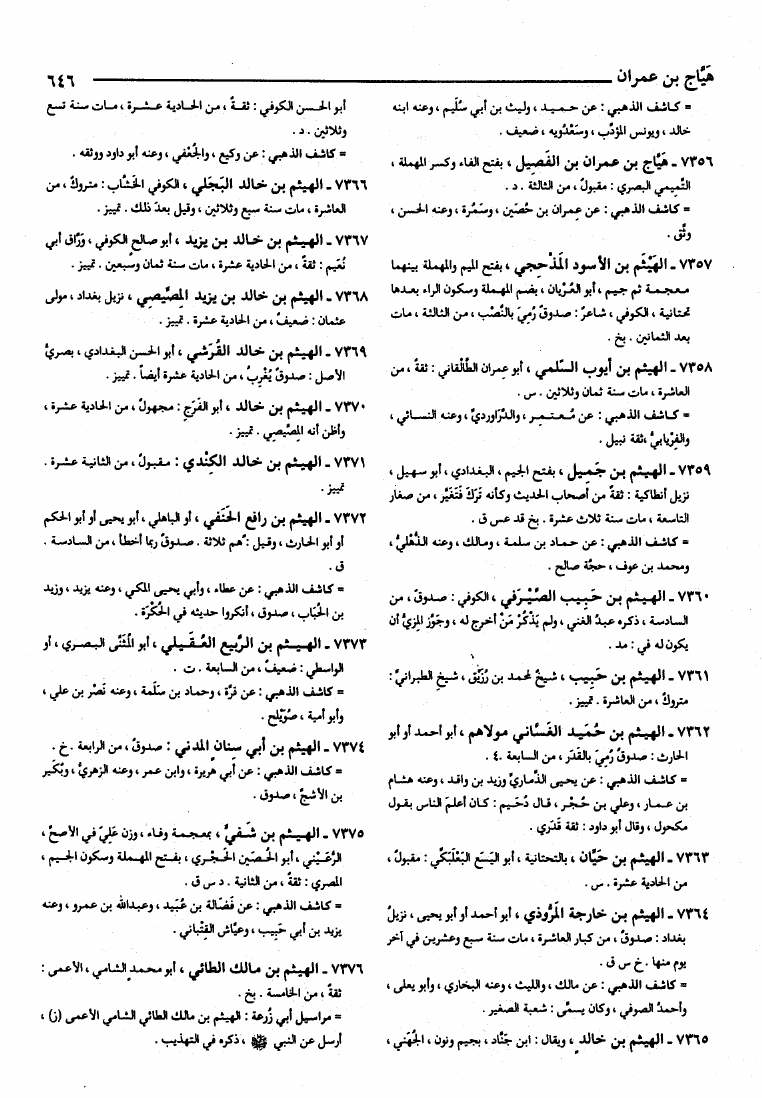 هَيَّاج بن عمران ٦٤٦
= كاشف الذهبي : عن حميد ، وليث بن أبي سُلَيم ، وعنه ابنه
خالد ، ويونس المؤدِّب ، وسَعْدُويه ، ضعيف .
٧٣٥٦ ـ هَيَّاج بن عمران بن الفَصِيل ، بفتح الفاء وكسر المهملة ،
التَّميمي البصري : مقبولٌ ، من الثالثة . د .
= كاشف الذهبي : عن عمران بن حُصَين ، وسَمُرة ، وعنه الحسن ،
وثِّق .
٧٣٥٧ ـ الهَيْثَم بن الأسود المَذْحِجي ، بفتح الميم والمهملة بينهما
معجمة ثم جيم ، أبو العُرْيان ، بضم المهملة وسكون الراء بعدها
تحتانية ، الكوفي ، شاعرٌ : صدوقٌ رُمِيَ بالنَّصْب ، من الثالثة ، مات
بعد الثمانين . بخ .
٧٣٥٨ ـ الهيثم بن أيوب السُّلَمي ، أبو عِمران الطَّالْقاني : ثقةٌ ، من
العاشرة ، مات سنة ثمان وثلاثين . س .
= كاشف الذهبي : عن مُعتمِر ، والدَّرَاوَرديِّ ، وعنه النسائي ،
والفِرْيابيُّ ، ثقة نبيل .
٧٣٥٩ ـ الهيثم بن جَميل ، بفتح الجيم ، البغدادي ، أبو سهيل ،
نزيل أنطاكية : ثقةٌ من أصحاب الحديث وكأنه تَرَكَ فَتَغَيَّر ، من صغار
التاسعة ، مات سنة ثلاث عشرة . بخ قد عس ق .
= كاشف الذهبي : عن حماد بن سلمة ، ومالك ، وعنه الذُّهْليُّ ،
ومحمد بن عوف ، حجَّة صالح .
٧٣٦٠ ـ الهيثم بن حَبِيب الصَّيْرَفي ، الكوفي : صدوقٌ ، من
السادسة ، ذكره عبدُ الغني ، ولم يَذْكُرْ مَنْ أخرج له ، وجَوَّز المِزيُّ أن
يكون له في : مد .
٧٣٦١ ـ الهيثم بن حَبِيب ، شيخٌ لمحمد بن رُزَيْق ، شيخِ الطبرانيِّ :
متروكٌ ، من العاشرة . تمييز .
٧٣٦٢ ـ الهيثم بن حُمَيد الغَسَّاني مولاهم ، أبو أحمد أو أبو
الحارث : صدوقٌ رُمِيَ بالقَدَر ، من السابعة . ٤ .
= كاشف الذهبي : عن يحيى الذِّماريِّ وزيد بن واقد ، وعنه هشام
بن عمار ، وعلي بن حُجْر ، قال دُحَيم : كان أعلمَ الناس بقول
مكحول ، وقال أبو داود : ثقة قَدَري .
٧٣٦٣ ـ الهيثم بن حَيَّان ، بالتحتانية ، أبو اليَسَع البَعْلَبَكِّي : مقبولٌ ،
من الحادية عشرة . س .
٧٣٦٤ ـ الهيثم بن خارجة المَرُّوذي ، أبو أحمد أو أبو يحيى ، نزيلُ
بغداد : صدوقٌ ، من كبار العاشرة ، مات سنة سبع وعشرين في آخر
يوم منها . خ س ق .
= كاشف الذهبي : عن مالك ، والليث ، وعنه البخاري ، وأبو يعلى ،
وأحمدُ الصوفي ، وكان يسمَّى : شعبة الصغير .
٧٣٦٥ ـ الهيثم بن خالد ، ويقال : ابن جَنَّاد ، بجيم ونون ، الجُهَني ،
أبو الحسن الكوفي : ثقةٌ ، من الحادية عشرة ، مات سنة تسع
وثلاثين . د .
= كاشف الذهبي : عن وكيع ، والجُعْفي ، وعنه أبو داود ووثقه .
٧٣٦٦ ـ الهيثم بن خالد البَجَلي ، الكوفي الخَشَّاب : متروكٌ ، من
العاشرة ، مات سنة سبع وثلاثين ، وقيل بعدَ ذلك . تمييز .
٧٣٦٧ ـ الهيثم بن خالد بن يزيد ، أبو صالح الكوفي ، وَرَّاق أبي
نُعَيم : ثقةٌ ، من الحادية عشرة ، مات سنة ثمان وسبعين . تمييز .
٧٣٦٨ ـ الهيثم بن خالد بن يزيد المِصِّيصي ، نزيل بغداد ، مولى
عثمان : ضعيفٌ ، من الحادية عشرة . تمييز .
٧٣٦٩ ـ الهيثم بن خالد القُرَشي ، أبو الحسن البغدادي ، بصريُّ
الأصل : صدوقٌ يُغْرِبُ ، من الحادية عشرة أيضاً . تمييز .
٧٣٧٠ ـ الهيثم بن خالد ، أبو الفَرَج : مجهولٌ ، من الحادية عشرة ،
وأظن أنه المِصِّيصي . تمييز .
٧٣٧١ ـ الهيثم بن خالد الكِنْدي : مقبولٌ ، من الثانية عشرة .
تمييز .
٧٣٧٢ ـ الهيثم بن رافع الحَنَفي ، أو الباهلي ، أبو يحيى أو أبو الحكم
أو أبو الحارث ، وقيل : هم ثلاثة . صدوقٌ ربما أخطأ ، من السادسة .
ق .
= كاشف الذهبي : عن عطاء ، وأبي يحيى المكي ، وعنه يزيد ، وزيد
بن الحُبَاب ، صدوق ، أنكروا حديثه في الحُكْرَة .
٧٣٧٣ ـ الهيثم بن الرَّبيع العُقَيلي ، أبو المُثَنَّى البصري ، أو
الواسطي : ضعيفٌ ، من السابعة . ت .
= كاشف الذهبي : عن قرَّة ، وحماد بن سَلَمة ، وعنه نَصْر بن علي ،
وأبو أمية ، صُوَيْلح .
٧٣٧٤ ـ الهيثم بن أبي سنانٍ المدني : صدوقٌ ، من الرابعة . خ .
= كاشف الذهبي : عن أبي هريرة ، وابن عمر ، وعنه الزهريُّ ، وبُكَير
بن الأشجِّ ، صدوق .
٧٣٧٥ ـ الهيثم بن شَفِيٍّ ، بمعجمة وفاء ، وزن عَلِيٍّ في الأصحِّ ،
الرُّعَيْني ، أبو الحُصَين الحَجْري ، بفتح المهملة وسكون الجيم ،
المصري : ثقةٌ ، من الثانية . د س ق .
= كاشف الذهبي : عن فَضَالة بن عُبَيد ، وعبدالله بن عمرو ، وعنه
يزيد بن أبي حَبِيب ، وعيَّاش القِتْباني .
٧٣٧٦ ـ الهيثم بن مالك الطائي ، أبو محمدٍ الشامي ، الأعمى :
ثقةٌ ، من الخامسة . بخ .
= مراسيل أبي زُرعة : الهيثم بن مالك الطائي الشامي الأعمى (ز) ،
أرسل عن النبي ﷺ ، ذكره في التهذيب .